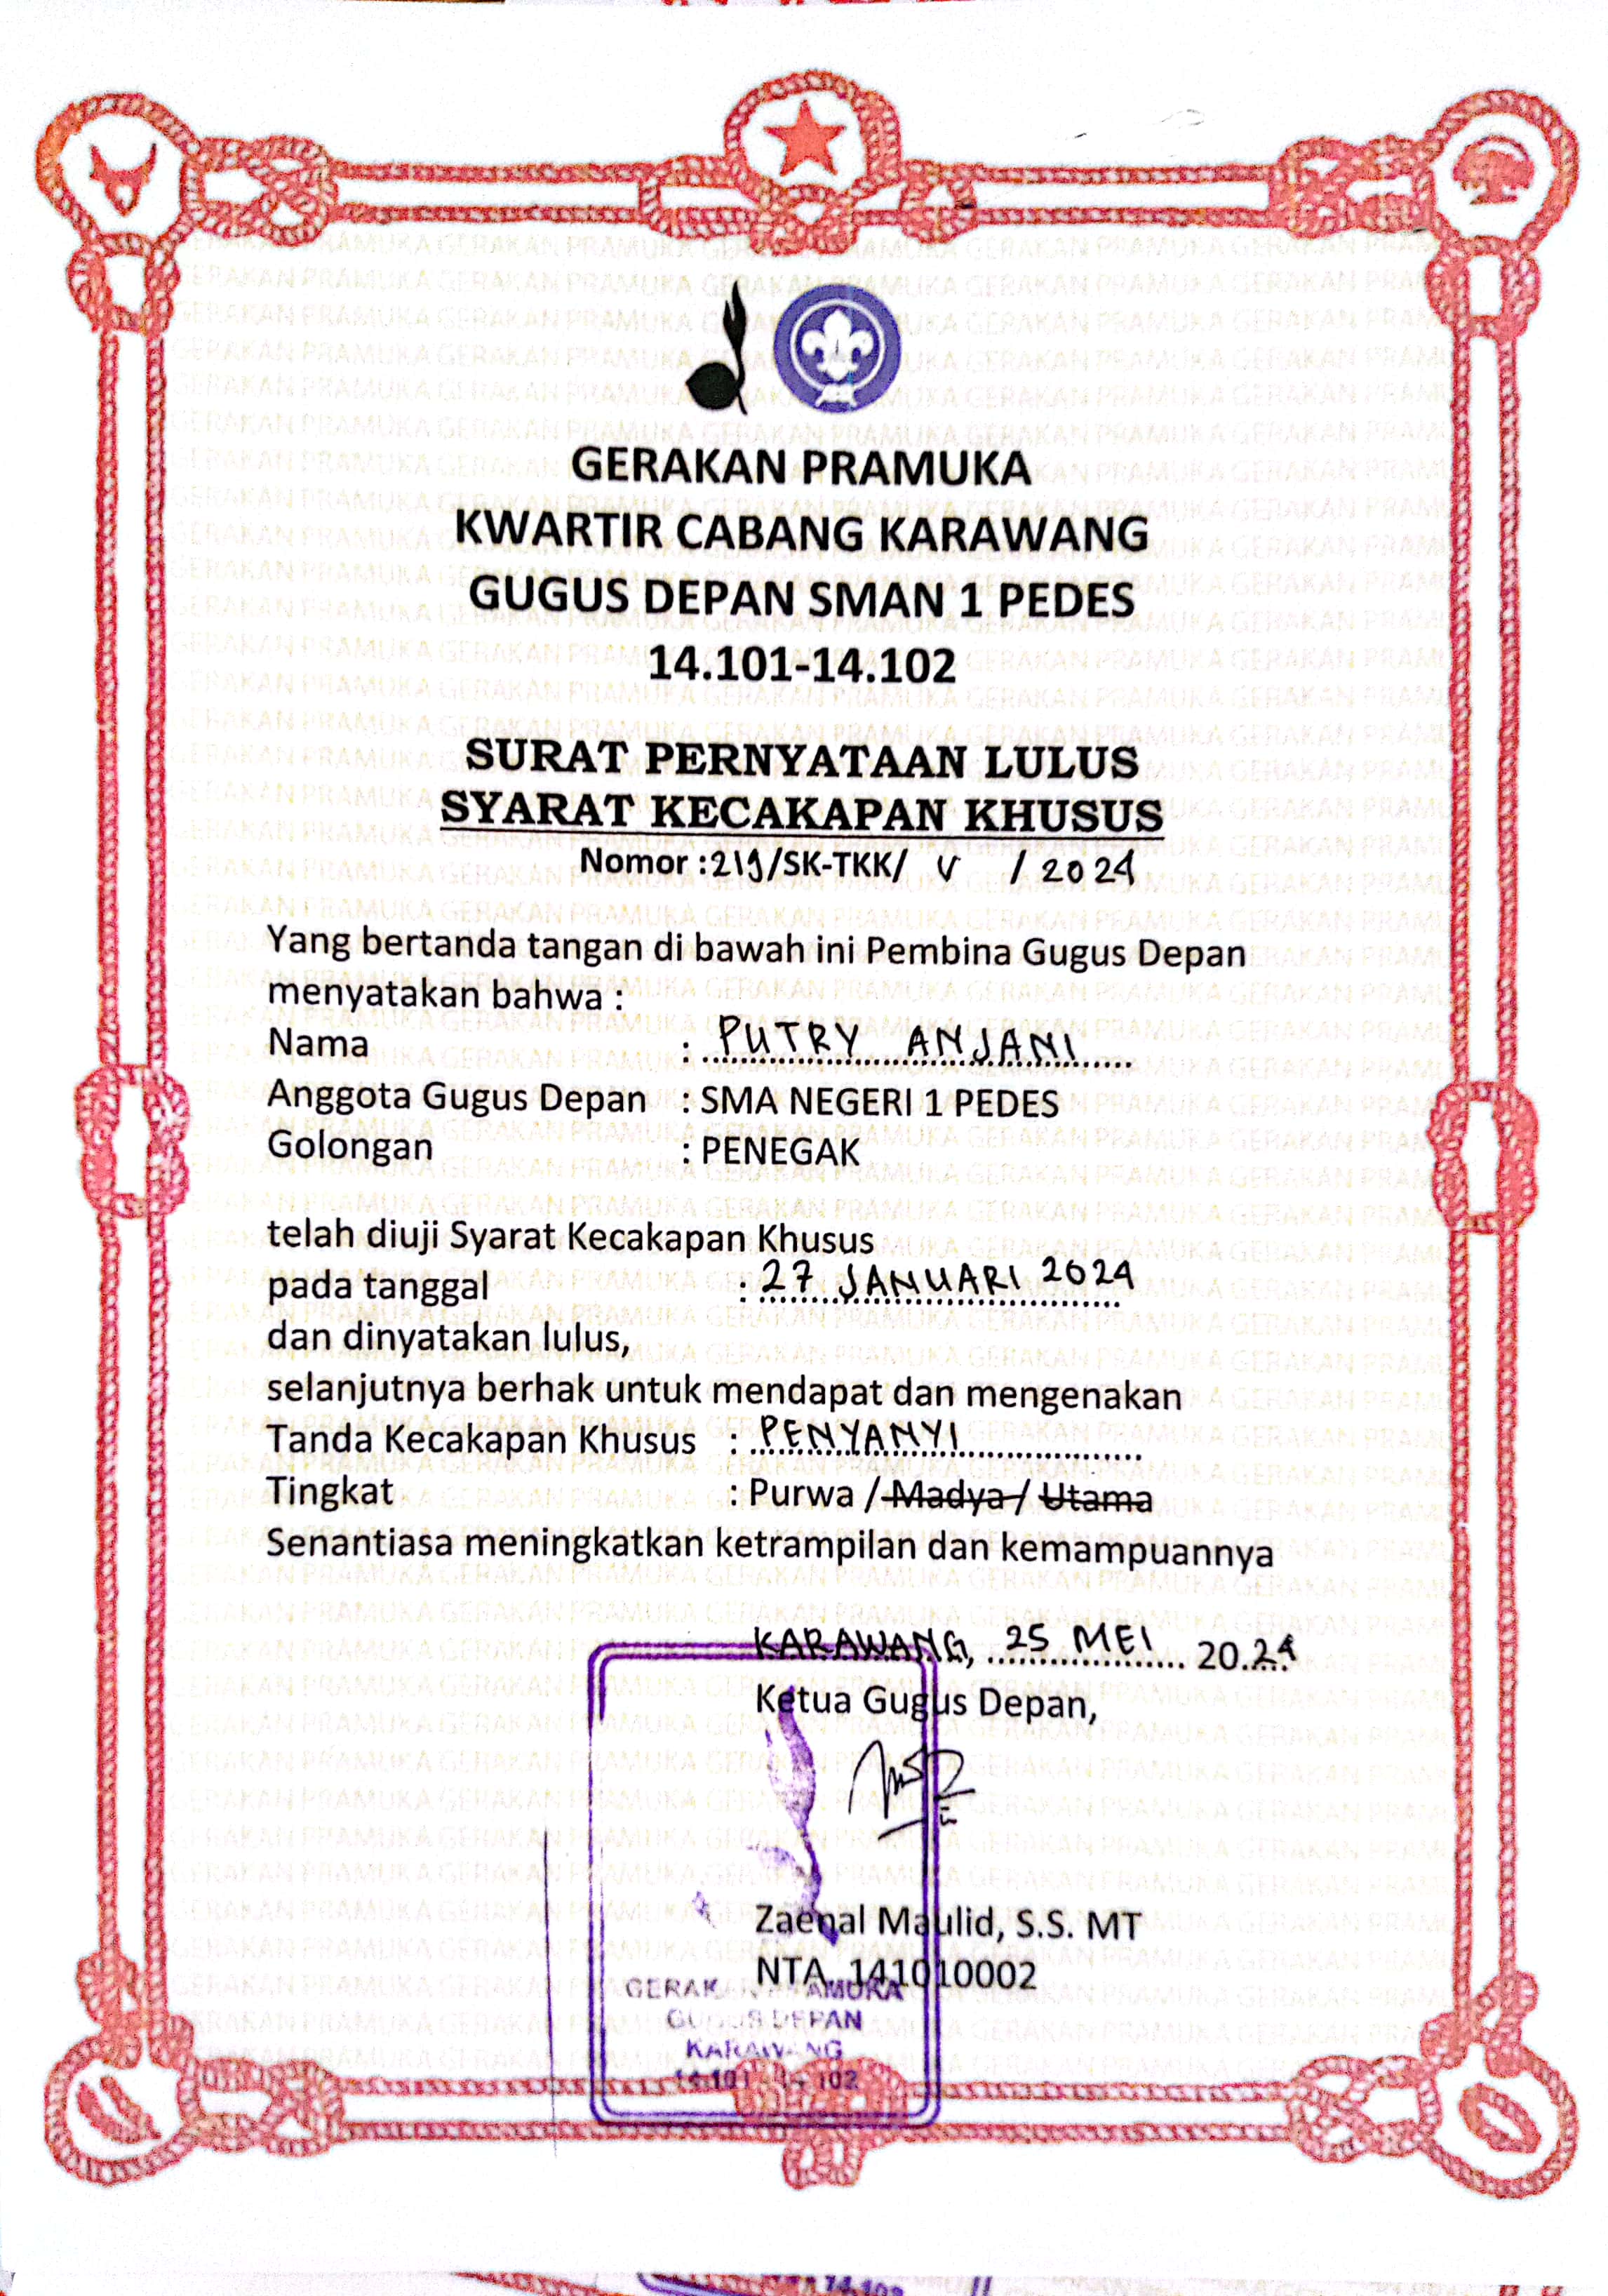 GERAKAN PRAMUKA
KWARTIR CABANG KARAWANG
GUGUS DEPAN SMAN 1 PEDES
14.101-14.102
SURAT PERNYATAAN LULUS
SYARAT KECAKAPAN KHUSUS
Nomor : 219/SK-TKK/ V / 2024
Yang bertanda tangan di bawah ini Pembina Gugus Depan
menyatakan bahwa :
Nama : PUTRY ANJANI
Anggota Gugus Depan : SMA NEGERI 1 PEDES
Golongan : PENEGAK
telah diuji Syarat Kecakapan Khusus
pada tanggal : 27 JANUARI 2024
dan dinyatakan lulus,
selanjutnya berhak untuk mendapat dan mengenakan
Tanda Kecakapan Khusus : PENYANYI
Tingkat : Purwa / Madya / Utama
Senantiasa meningkatkan ketrampilan dan kemampuannya
KARAWANG, 25 MEI 2024
Ketua Gugus Depan,
Zaenal Maulid, S.S. MT
NTA. 141010002
GUGUS DEPAN
KARAWANG
14.101 - 14.102